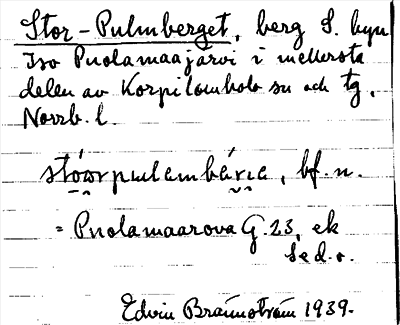 Stor-Pulmberget, berg S. byn
Iso Puolamaajärvi i mellersta
delen av Korpilombolo sn och tg,
Norrb. l.
stówrpulembárıe, bf. n.
= Puolamaarova G. 23, ek
se d. o.
Edvin Brännström 1939.